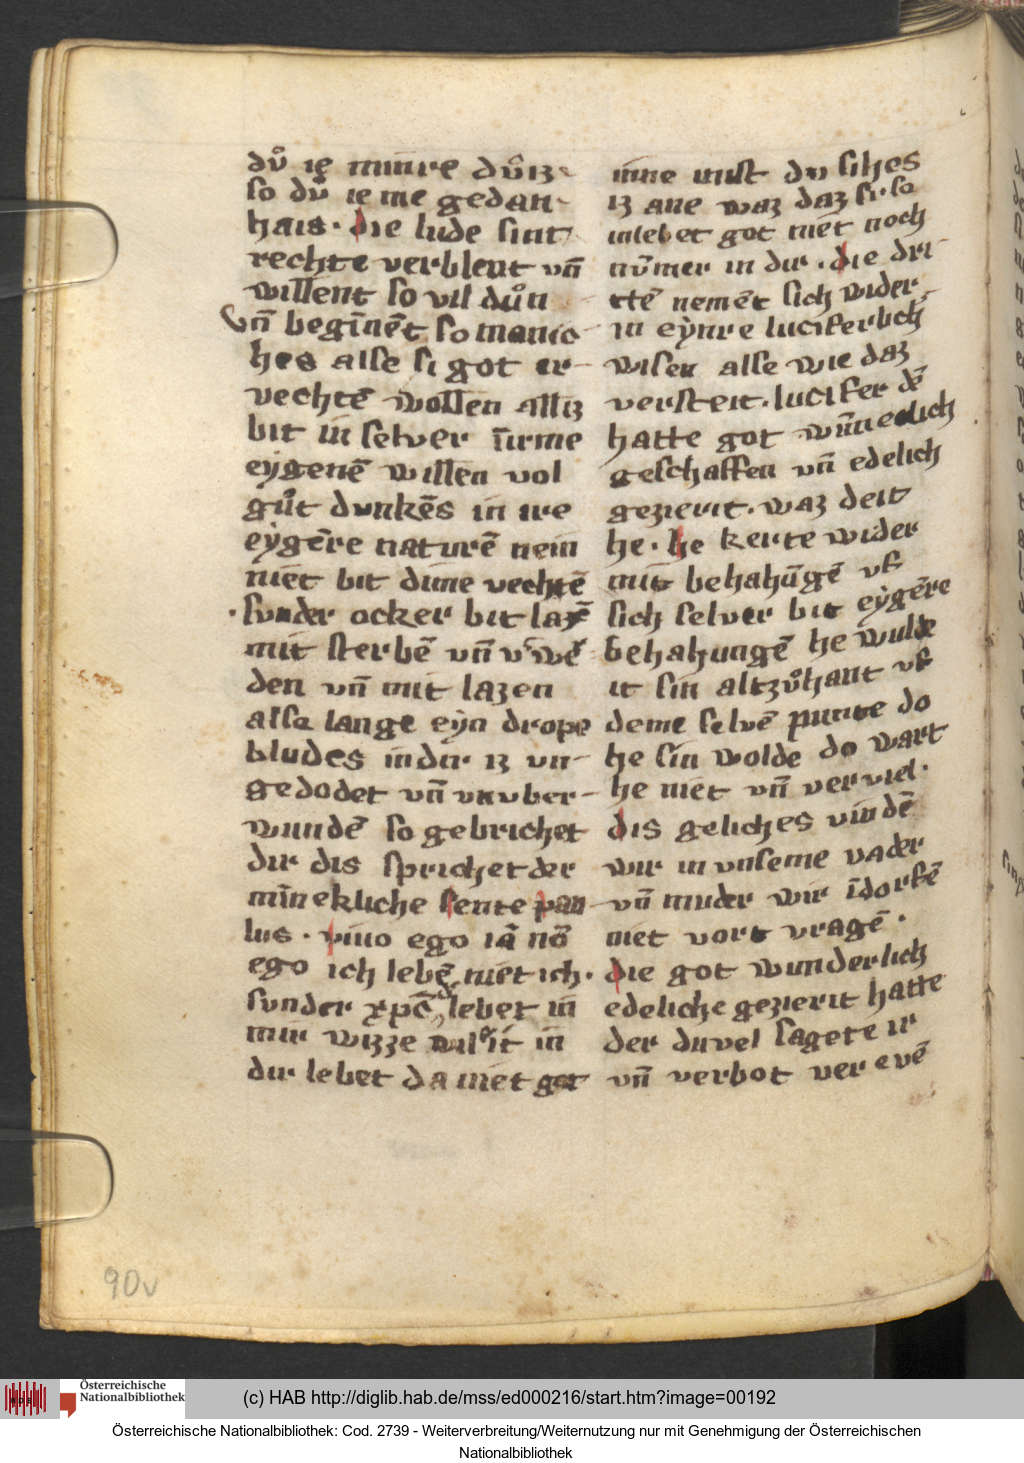 dů ie minre důiz
so dů ie me gedan-
hais · die lude sint
rechte verblent vn̄
willent so vil důn
vn̄ begīnēt so manic-
hes alse si got er-
vechtē wollen alliz
bit in selver īirme
eẏgenē willen vol
gůt dvnkēs in ire
eẏgēre naturē nein
niet bit dime vechtē
· svnder ocker bit lazē
mit sterbē vn̄ v'wē
den vn̄ mit lazen
alse lange eẏn drope
bludes in dir iz vn-
gedodet vn̄ vnvber-
wundē so gebrichet
dir dis sprichet der
mīnekliche sente pau-
lus · vivo ego iā nō
ego ich lebē niet ich ·
svnder xpc̄ lebet in
mir wizze
in
dir lebet da niet got
inne mist dv sihes
iz ane waz daz si · so
inlebet got niet noch
nūmer in dir · die dri
ttē nemēt sich wider
in eẏnre luciferlich
wisen alse wie daz
versteit · lucifer dē
hatte got wūnedlich
geschaffen vn̄ edelich
gezierit · waz deit
he · he kerte wider
mit behahūgē vf
sich selver bit eẏgēre
behahungē he wulde
it sin altzůhant vf
deme selvē punte do
he sin wolde do wart
he niet vn̄ verviel ·
dis geliches vindē
wir in vnseme vader
vn̄ muder wir īdorfē
niet vort vragē ·
die got wunderlich
edeliche gezierit hatte
der duvel sagete ir
vn̄ verbot ver evē
90v
HAB
Österreichische
Nationalbibliothek
(c) HAB http://diglib.hab.de/mss/ed000216/start.htm?image=00192
Österreichische Nationalbibliothek: Cod. 2739 - Weiterverbreitung/Weiternutzung nur mit Genehmigung der Österreichischen
Nationalbibliothek